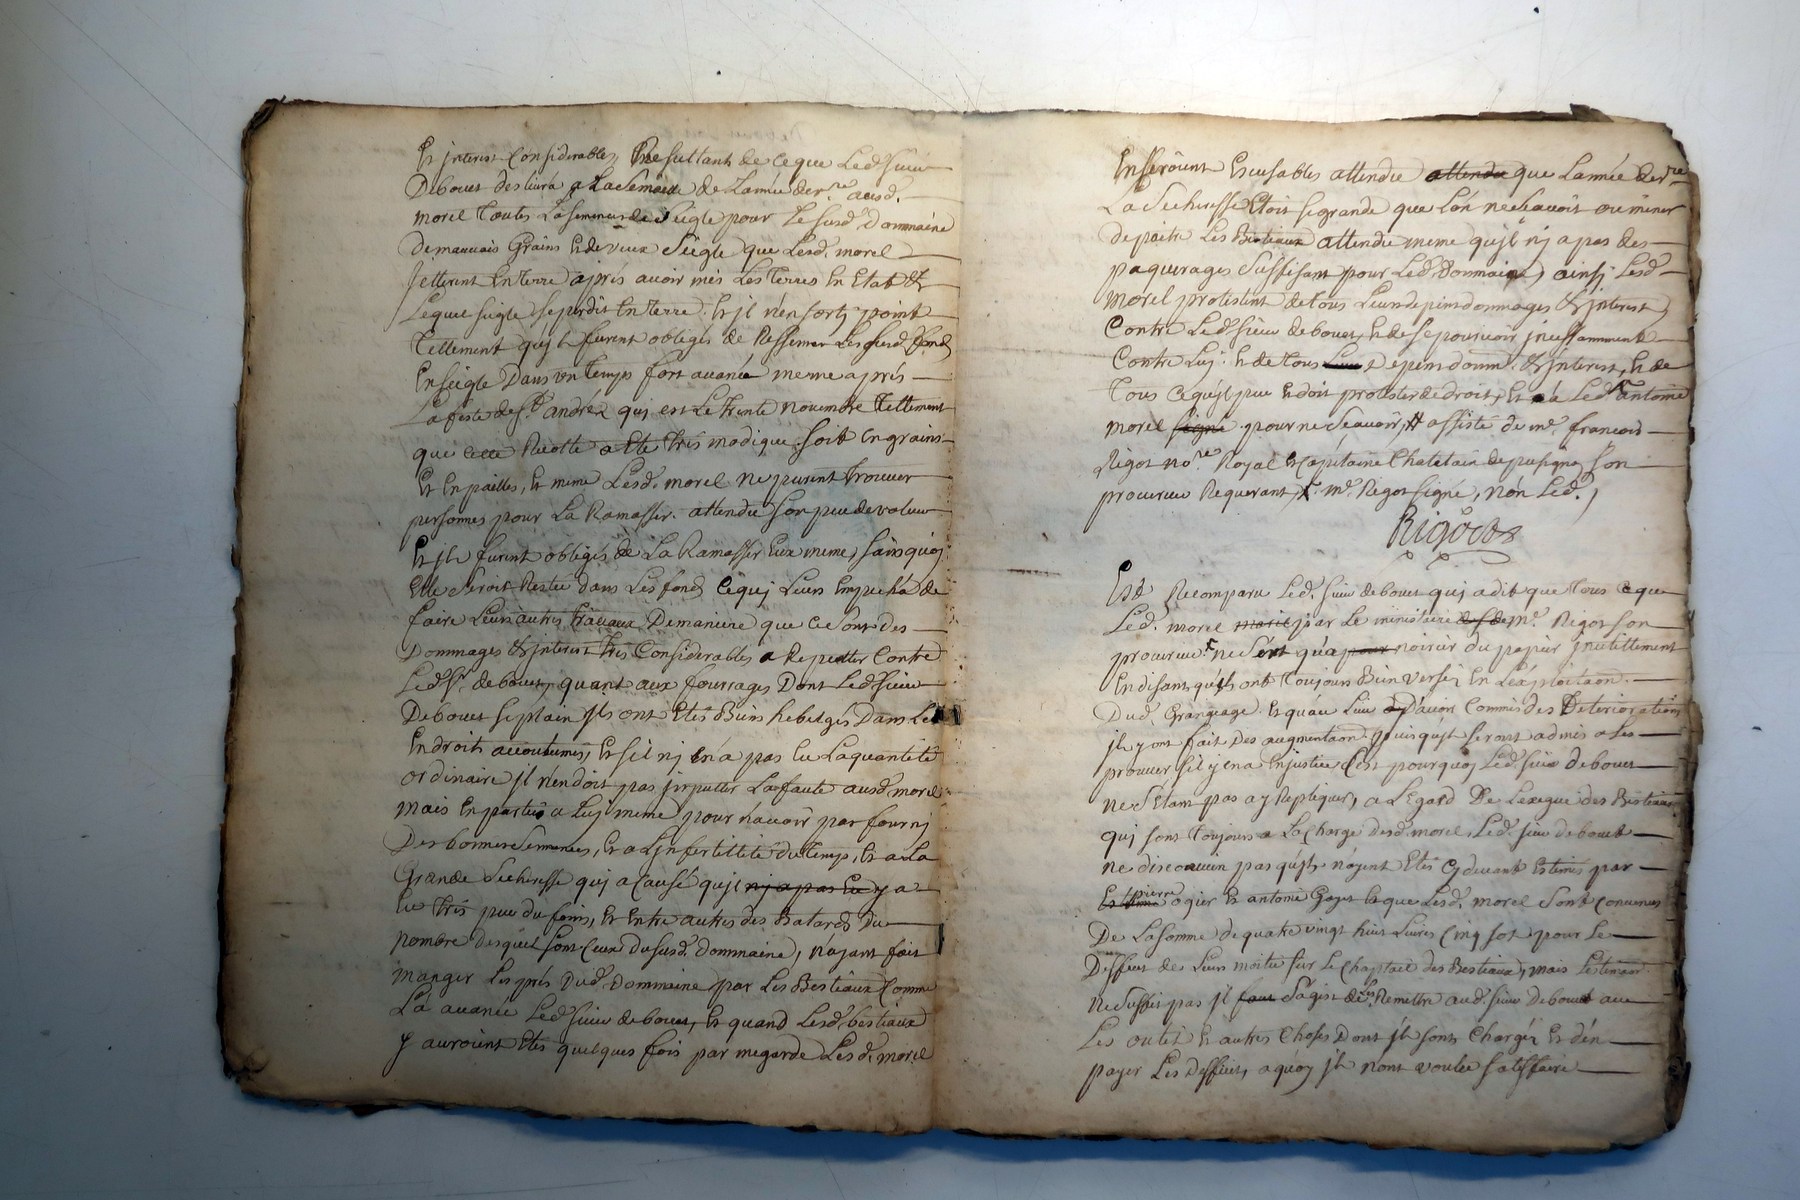 Et jnterest Considerables, Resultant de ce que Led. sieur
Debouet deslivra a La Semaille de Lannée der.re ausd.
morel Toutes La semence de Siegle pour Le susd. Dommaine
de mauvais Grains Et de vieux Siegle que Lesd. morel
Jetterent En Terre après avoir mis Les Terres En Etat &
Lequel siegle se perdit En Terre. Et jl n'en sorty point
Tellement qu'jl furent obligés de Ressemer Les susd. fonds
En siegle Dans un Temps fort avancée meme après
La feste de St. andréz qui est Le Trente novembre Tellement
que cette Recolte a Eté Très modique soit En grains
Et En pailles, Et meme Lesd. morel ne purent Trouver
personnes pour La Ramasser. attendu son peu de valeur
Et jls furent obligés de La Ramasser Eux meme, sans quoy
Elle seroit Restée dans Les fond, ce quj Leurs Empecha de
faire Leurs autres Travaux De maniere que ce sont des
Dommages & jnterest Très Considerables a Repetter Contre
Led. Sr. de bouet, quant aux fourrages Dont Led. sieur
Debouet se plain jls ont Etés Bien hebergés Dans Les
Endroits accoutumés, Et s'il nj En a pas Eu La quantité
ordinaire jl n'en doit pas jmputter La faute ausd. morel
mais En partie a Luj meme pour n'avoir pas fournj
Des bonnes Semences, Et a L'jnfertillité du Temps, Et a La
Grande Secheresse quj a Causé qu'jl nj a pas Eu y a
Eu Très peu du foins, Et Entre autres des Batards Du
nombre desquel sont Ceux Du susd. Dommaine, n'ayant fait
manger Les prés Dud. Dommaine par Les Bestiaux Comme
L'a avancé Led. sieur de bouet, Et quand Lesd. bestiaux
y auroient Etés quelques fois par megarde Lesd. morel
En seroient Excusables attendu attendu que Lannée der.re
La Secheresse Etoit se grande que Lon ne sçavoit ou mener
depaitre Les Bestiaux attendu meme qu'jl nj a pas des
paquerages suffisant pour Led. Dommaine, ainsj Lesd.
morel protestent de Tous Leurs depens dommages & jnterest,
Contre Led. sieur de bouet, Et de se pourvoir jncessamment
Contre Luj. Et de Tous Leur depens domm. & jnterest, Et de
Tous ce qu'jl peu Et doit protester de droit, Et a Led. antoine
morel signé pour ne Sçavoir, assisté de me. francois
Rigot no.re Royal & Capitaine Chatelain de pusigne son
procureur Requerant, me. Rigot signé, non Led.
Rigot
Est Recomparu Led. sieur de bouet quj a dit que Tous ce que
Led. morel par Le ministere de me. Rigot son
procureur ne sert qu'a pour noircir du papier jnutillement
En disant qu'jls ont Toujours Bien versé En L'exploitaon.
Dud. Grangeage Et qu'au Lieu d'avoir Commis des Deteriorations
jls y ont fait Des augmentaon. puisqu'jls seront admis a Les
prouver s'jl y en a En justice C'est pourquoy Led. sieur de bouet
ne S'etant pas a y Repliquer, a L'Egard De L'exegue des Bestiaux
quj sont Toujours a La Charge desd. morel, Led. sieur de bouet
ne disconvien pas qu'jls n'ayent Etés Cy devant Estimés par
pierre ogier Et antoine Gayet Et que Lesd. morel sont Convenus
De La somme de quatre vingt huit Livres Cinq sot pour Le
Deffaut de Leurs moitié sur Le Chaptail des Bestiaux, mais
ne suffit pas jl faut S'agist de Les Remettre aud. sieur Debouet avec
Les outils Et autres Choses Dont jls sont Chargéz Et d'en
payer Les Deffuits, a quoy jls n'ont voulu satisfaire